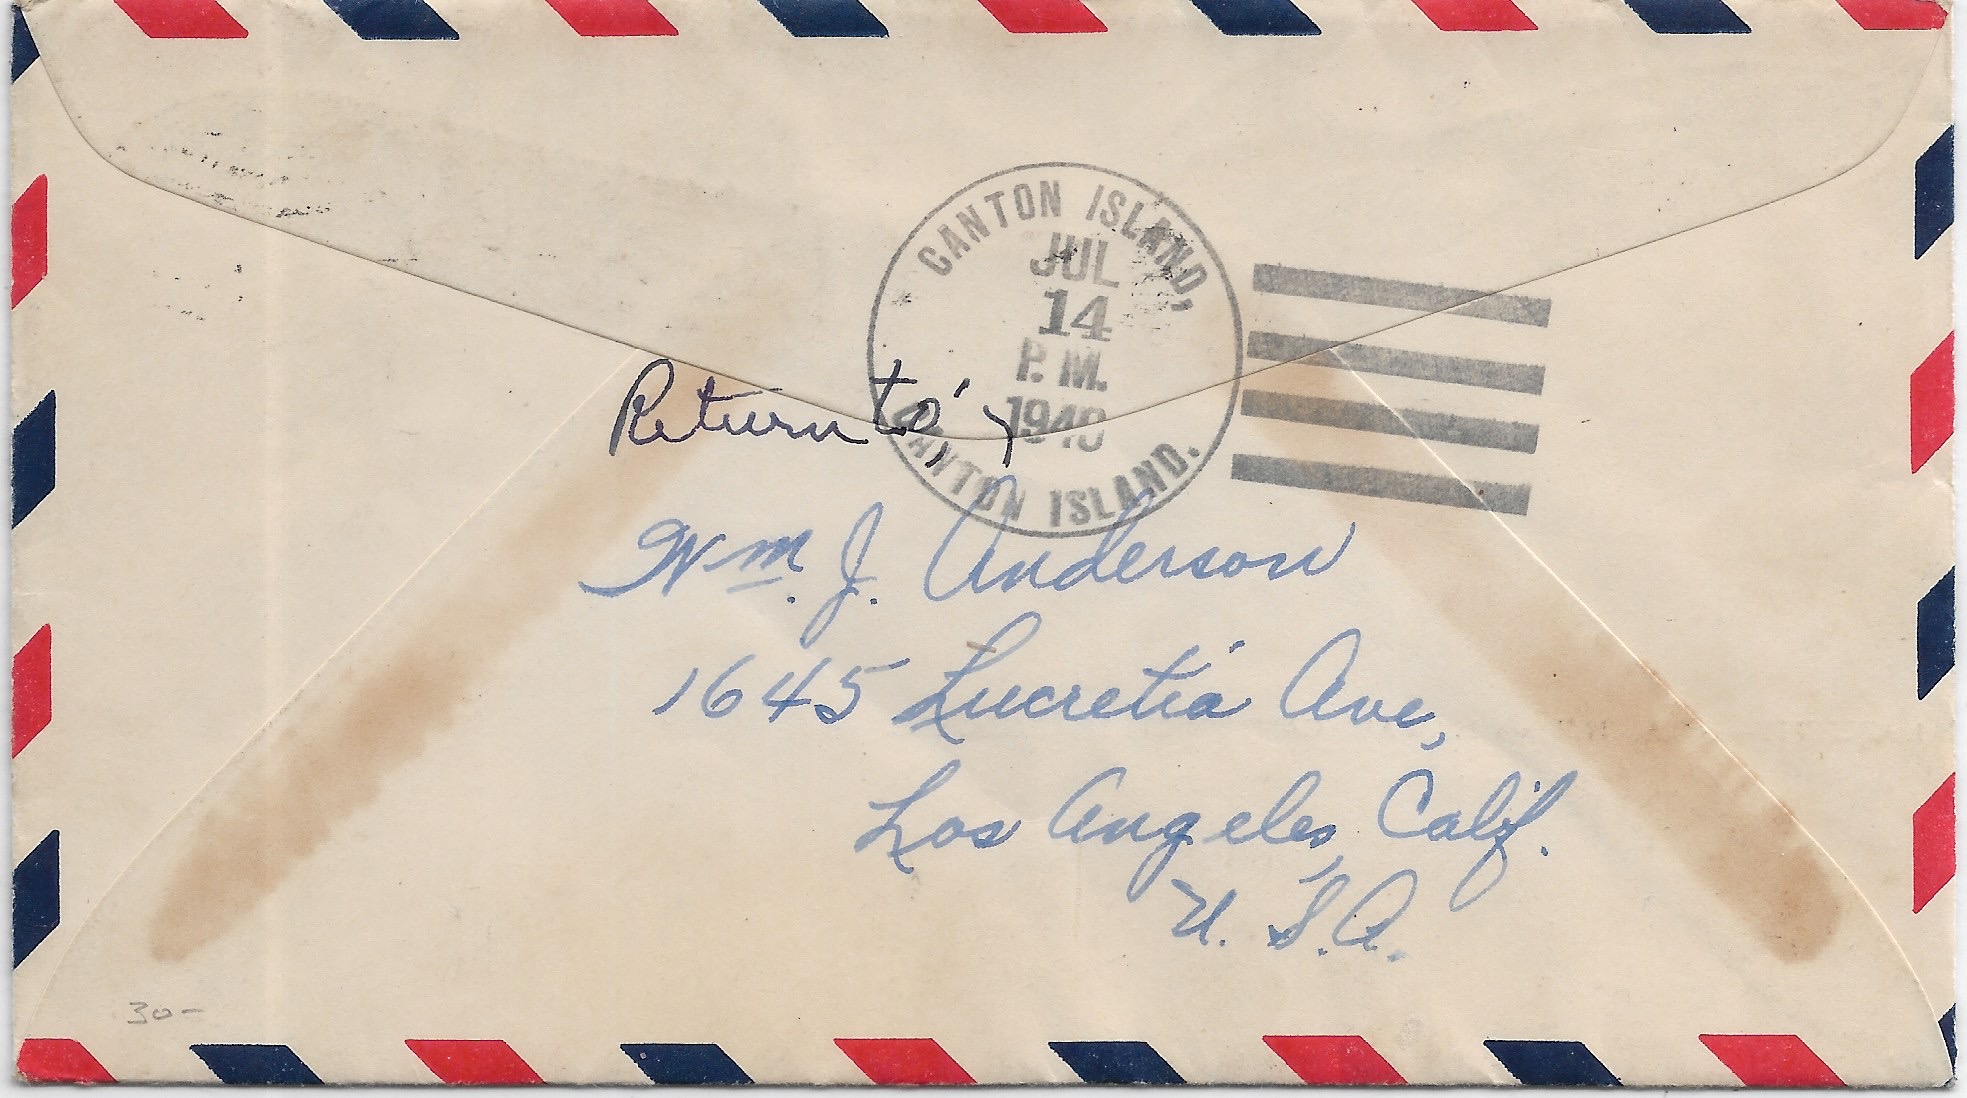 CANTON ISLAND,
JUL
14
P. M.
1940
CANTON ISLAND.
Return to,
Wm. J. Anderson
1645 Lucretia Ave,
Los Angeles, Calif.
U. S. A.
30-